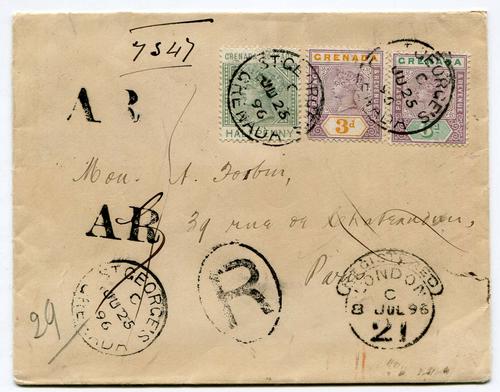 7347
GRENADA
HALF PENNY
ST GEORGE'S
C
JU 25
96
GRENADA
GRENADA
3d
GRENADA
ST GEORGE'S
C
JU 25
96
GRENADA
A R
Mon. A.
AR
39 rue de
Paris
R
REGISTERED
LONDON
C
8 JUL 96
21
ST GEORGE'S
C
JU 25
96
GRENADA
29